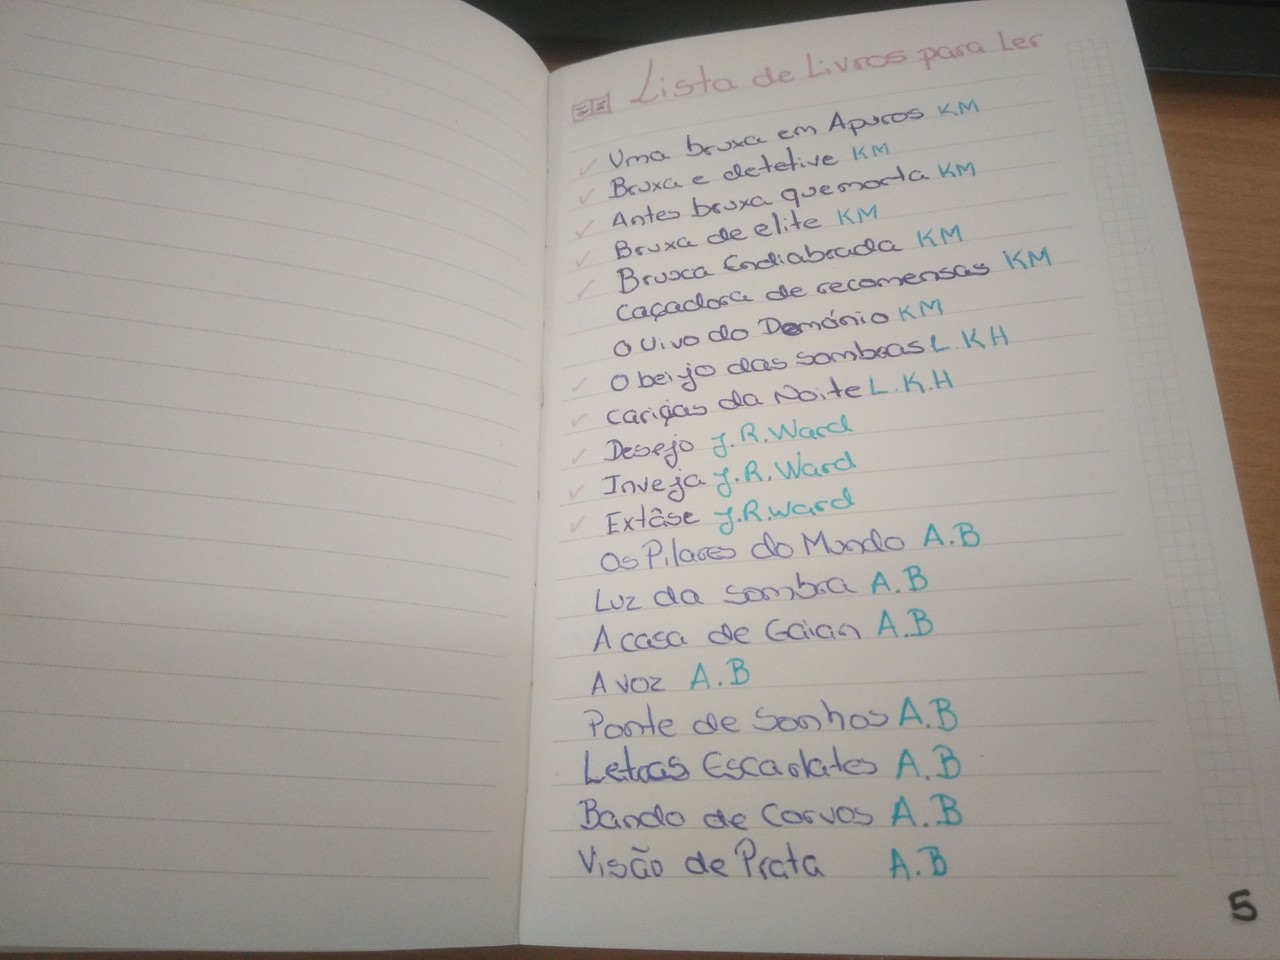 Lista de Livros para Ler
✓ Uma bruxa em Apuros KM
✓ Bruxa e detetive KM
✓ Antes bruxa que morta KM
✓ Bruxa de elite KM
✓ Bruxa Endiabrada KM
Caçadora de recomensas KM
O Uivo do Demónio KM
✓ O beijo das sombras L K H
✓ Carigas da Noite L.K.H
✓ Desejo J.R.Ward
✓ Inveja J.R.Ward
✓ Extâse J.R.Ward
Os Pilares do Mundo A.B
Luz da Sombra A.B
A casa de Gaian A.B
A voz A.B
Ponte de Sonhos A.B
Letras Escarlates A.B
Bando de Corvos A.B
Visão de Prata A.B
5